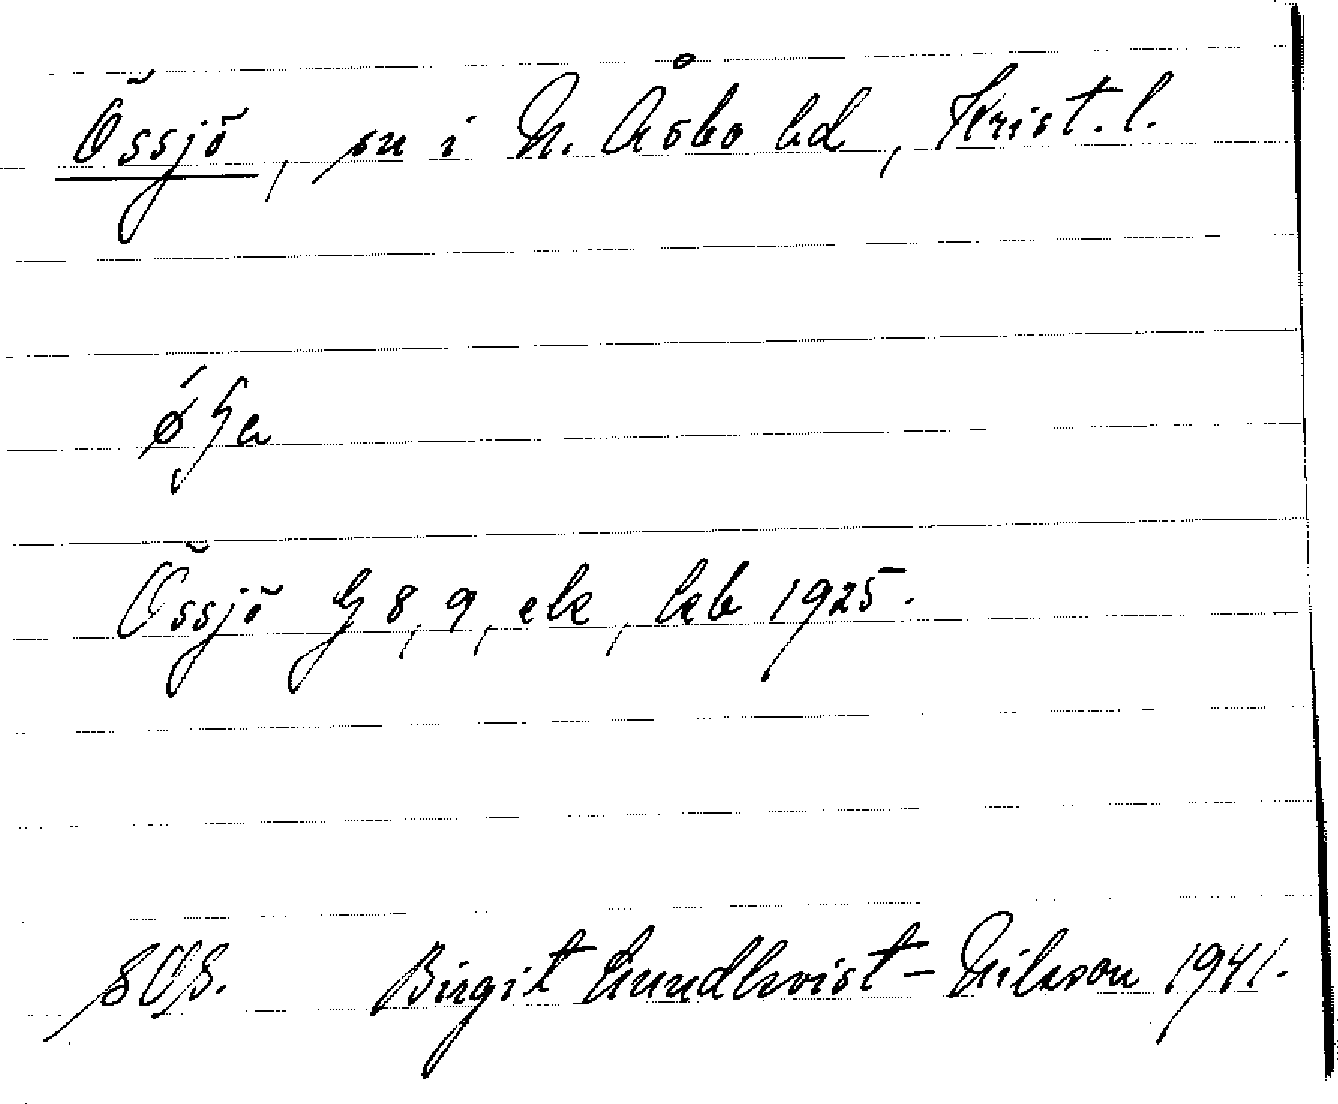 Össjö, sn i N. Åsbo hd, Krist. l.
Össjö G 8, 9, ek, kb 1925.
SOS. Birgit Lundkvist-Nilsson 1941.